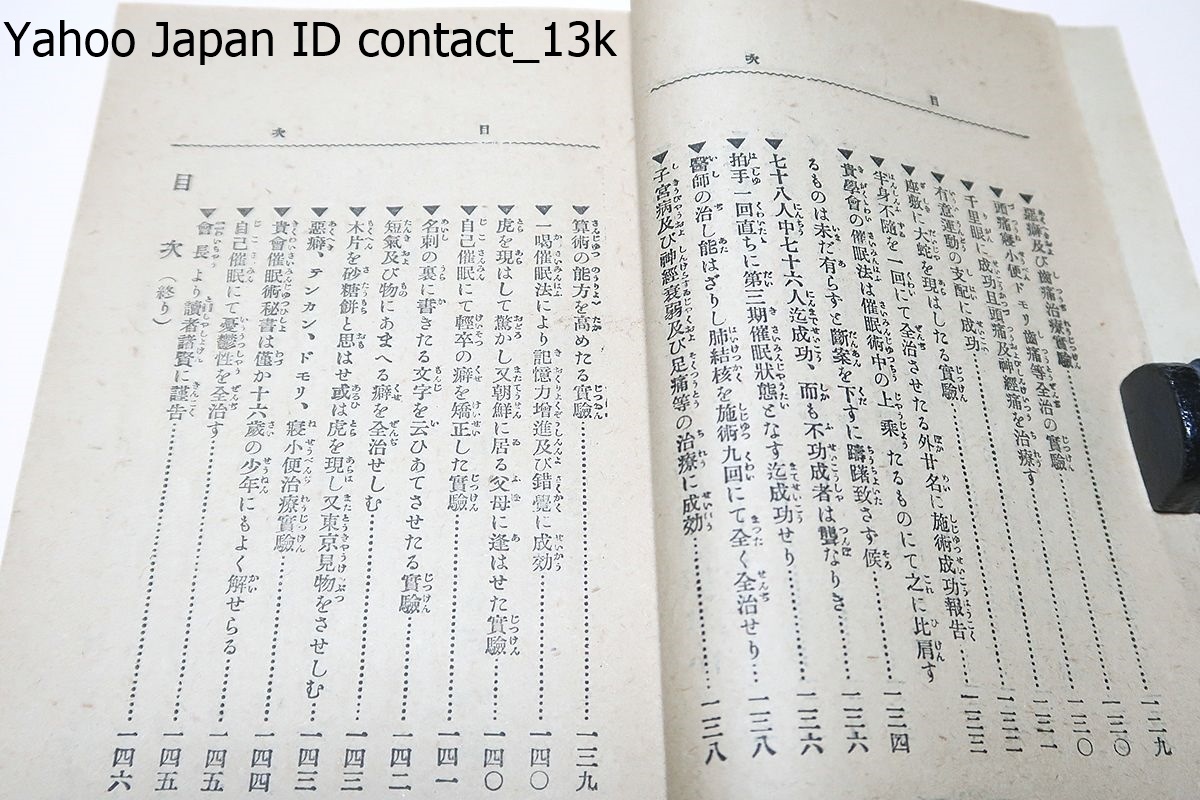 Yahoo Japan ID contact_13k
目次
▼惡癖及び齒痛治療實驗……一二九
▼頭痛寢小便ドモリ齒痛等全治の實驗……一三〇
▼千里眼に成功且頭痛及神經痛を治療す……一三〇
▼有意運動の支配に成功……一三一
▼座敷に大蛇を現はしたる實驗……一三二
▼半身不隨を一回にて全治させたる外廿名に施術成功報告……一三三
▼貴學會の催眠法は催眠術中の上乘たるものにて之に比肩す
るものは未だ有らずと斷案を下すに躊躇致さず候……一三四
▼七十八人中七十六人迄成功、而も不功成者は聾なりき……一三六
▼拍手一回直ちに第三期催眠狀態となす迄成功せり……一三六
▼醫師の治し能はざりし肺結核を施術九回にて全く全治せり……一三八
▼子宮病及び神經衰弱及び足痛等の治療に成効……一三八
目次
▼算術の能方を高めたる實驗……一三九
▼一喝催眠法により記憶力增進及び錯覺に成効……一四〇
▼虎を現はして驚かし又朝鮮に居る父母に逢はせた實驗……一四〇
▼自己催眠にて輕卒の癖を矯正した實驗……一四一
▼名刺の裏に書きたる文字を云ひあてさせたる實驗……一四二
▼短氣及び物にあまへる癖を全治せしむ……一四三
▼木片を砂糖餅と思はせ或は虎を現し又東京見物をさせしむ……一四三
▼惡癖、テンカン、ドモリ、寢小便治療實驗……一四四
▼貴會催眠術秘書は僅か十六歲の少年にもよく解せらる……一四五
▼自己催眠にて憂鬱性を全治す……一四五
▼會長より讀者諸賢に謹告……一四六
目次(終り)